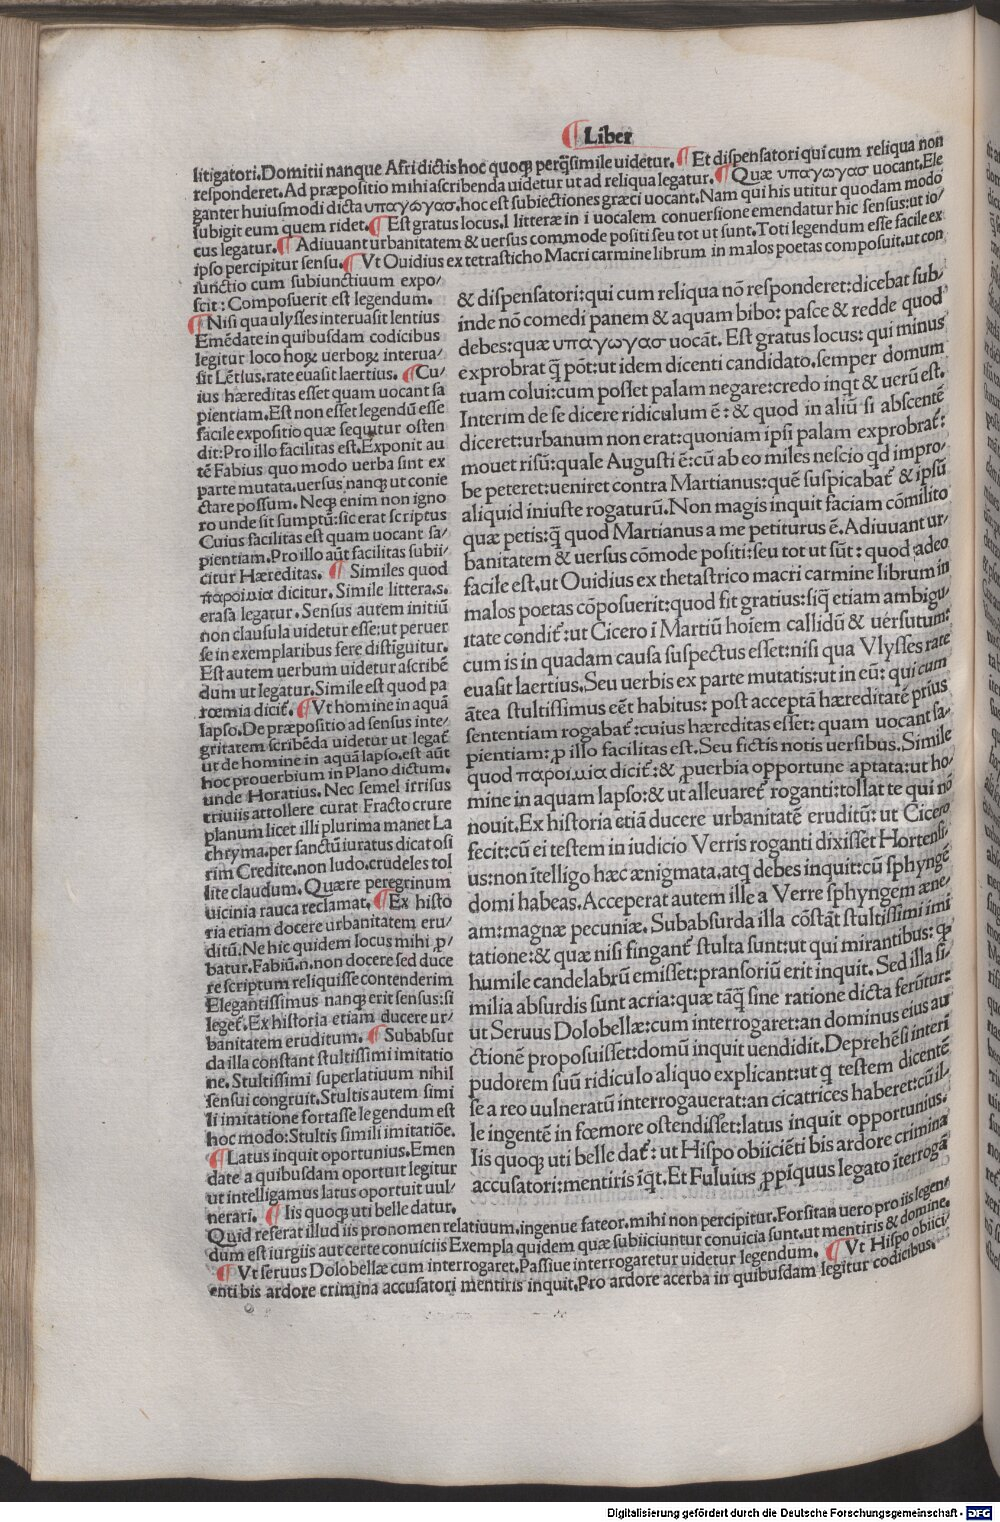 ¶ Liber
litigatori.Domitii nanque Afri dictis hoc quoqꝫ perq̃simile uidetur. ¶ Et dispensatori qui cum reliqua non
responderet.Ad præpositio mihi ascribenda uidetur ut ad reliqua legatur. ¶ Quæ υπαγωγασ uocant.Ele
ganter huiusmodi dicta υπαγωγασ.hoc est subiectiones græci uocant.Nam qui his utitur quodam modo
subigit eum quem ridet. ¶ Est gratus locus.I litteræ in i uocalem conuersione emendatur hic sensus:ut io/
cus legatur. ¶ Adiuuant urbanitatem & uersus commode positi seu tot ut sunt.Toti legendum esse facile ex
ipso percipitur sensu. ¶ Vt Ouidius ex tetrasticho Macri carmine librum in malos poetas composuit.ut con
iunctio cum subiunctiuum expo/
scit:Composuerit est legendum.
¶ Nisi qua ulysses interuasit lentius
Emēdate in quibusdam codicibus
legitur loco hoꝝ uerboꝝ interua/
sit Lētius.rate euasit laertius. ¶ Cu/
ius hæreditas esset quam uocant sa
pientiam.Est non esset legendū esse
facile expositio quæ sequitur osten
dit:Pro illo facilitas est.Exponit au
tē Fabius quo modo uerba sint ex
parte mutata.uersus nanqꝫ ut conie
ctare possum. Neqꝫ enim non igno
ro unde sit sumptū:sic erat scriptus
Cuius facilitas est quam uocant sa/
pientiam.Pro illo aūt facilitas subii/
citur Hæreditas. ¶ Similes quod
παροιμια dicitur. Simile littera.s.
erasa legatur. Sensus autem initiū
non clausula uidetur esse:ut peruer
se in exemplaribus fere distīguitur.
Est autem uerbum uidetur ascribē
dum ut legatur.Simile est quod pa
rœmia dicit᷑. ¶ Vt homine in aquā
lapso.De præpositio ad sensus inte/
gritatem scribēda uidetur ut legat᷑
ut de homine in aquā lapso.est aūt
hoc prouerbium in Plano dictum.
unde Horatius. Nec semel irrisus
triuiis attollere curat Fracto crure
planum licet illi plurima manet La
chryma.per sanctū iuratus dicat osi
rim Credite.non ludo.crudeles tol
lite claudum. Quære peregrinum
uicinia rauca reclamat. ¶ Ex histo
ria etiam docere urbanitatem eru/
ditū.Ne hic quidem locus mihi ꝓ/
batur.Fabiū.n.non docere sed duce
re scriptum reliquisse contenderim
Elegantissimus nanqꝫ erit sensus:si
leget᷑.Ex historia etiam ducere ur/
banitatem eruditum. ¶ Subabsur
da illa constant stultissimi imitatio
ne. Stultissimi superlatiuum nihil
sensui congruit.Stultis autem simi
li imitatione fortasse legendum est
hoc modo:Stultis simili imitatiōe.
¶ Latus inquit oportunius.Emen
date a quibusdam oportuit legitur
ut intelligamus latus oportuit uul/
nerari. ¶ Iis quoqꝫ uti belle datur.
& dispensatori:qui cum reliqua nō responderet:dicebat sub/
inde nō comedi panem & aquam bibo: pasce & redde quod
debes:quæ υπαγωγασ uocāt. Est gratus locus: qui minus
exprobrat q̃ pōt:ut idem dicenti candidato.semper domum
tuam colui:cum posset palam negare:credo inqt & uerū est.
Interim de se dicere ridiculum ē: & quod in aliū si abscentē
diceret:urbanum non erat:quoniam ipsi palam exprobrat᷑:
mouet risū:quale Augusti ē:cū ab eo miles nescio qd impro/
be peteret:ueniret contra Martianus:quē suspicabat᷑ & ipsū
aliquid iniuste rogaturū.Non magis inquit faciam cōmilito
quæ petis:q̃ quod Martianus a me petiturus ē.Adiuuant ur/
banitatem & uersus cōmode positi:seu tot ut sūt: quod adeo
facile est.ut Ouidius ex thetastrico macri carmine librum in
malos poetas cōposuerit:quod fit gratius:siq̃ etiam ambigu/
itate condit᷑:ut Cicero ī Martiū hoīem callidū & uersutum:
cum is in quadam causa suspectus esset:nisi qua Vlysses rate
euasit laertius.Seu uerbis ex parte mutatis:ut in eū: qui cum
ātea stultissimus eēt habitus: post acceptā hæreditatē prius
sententiam rogabat᷑:cuius hæreditas esset: quam uocant sa/
pientiam: ꝓ illo facilitas est.Seu fictis notis uersibus.Simile
quod παροιμια dicit᷑:& ꝓuerbia opportune aptata:ut ho/
mine in aquam lapso:& ut alleuaret᷑ roganti:tollat te qui nō
nouit.Ex historia etiā ducere urbanitatē eruditū: ut Cicero
fecit:cū ei testem in iudicio Verris roganti dixisset Hortensi/
us:non ītelligo hæc ænigmata.atq debes inquit:cū sphyngē
domi habeas.Acceperat autem ille a Verre sphyngem æne/
am:magnæ pecuniæ. Subabsurda illa cōstāt stultissimi imi
tatione:& quæ nisi fingant᷑ stulta sunt:ut qui mirantibus: ꝙ
humile candelabrū emisset:pransoriū erit inquit. Sed illa si/
milia absurdis sunt acria:quæ tāq̃ sine ratione dicta ferūtur:
ut Seruus Dolobellæ:cum interrogaret:an dominus eius au
ctionē proposuisset:domū inquit uendidit.Deprehēsi interī
pudorem suū ridiculo aliquo explicant:ut q testem dicentē
se a reo uulneratū interrogauerat:an cicatrices haberet:cū il/
le ingentē in fœmore ostendisset:latus inquit opportunius.
Iis quoqꝫ uti belle dat᷑: ut Hispo obiiciēti bis ardore crimina
accusatori:mentiris iqt.Et Fuluius ꝓpiquus legato īterrogā
Quid referat illud iis pronomen relatiuum.ingenue fateor.mihi non percipitur.Forsitan uero pro iis legen/
dum est iurgiis aut certe conuiciis Exempla quidem quæ subiiciuntur conuicia sunt.ut mentiris & domine.
¶ Vt seruus Dolobellæ cum interrogaret.Passiue interrogaretur uidetur legendum. ¶ Vt Hispo obiici/
enti bis ardore crimina accusatori mentiris inquit.Pro ardore acerba in quibusdam legitur codicibus.
Digitalisierung gefördert durch die Deutsche Forschungsgemeinschaft - DFG